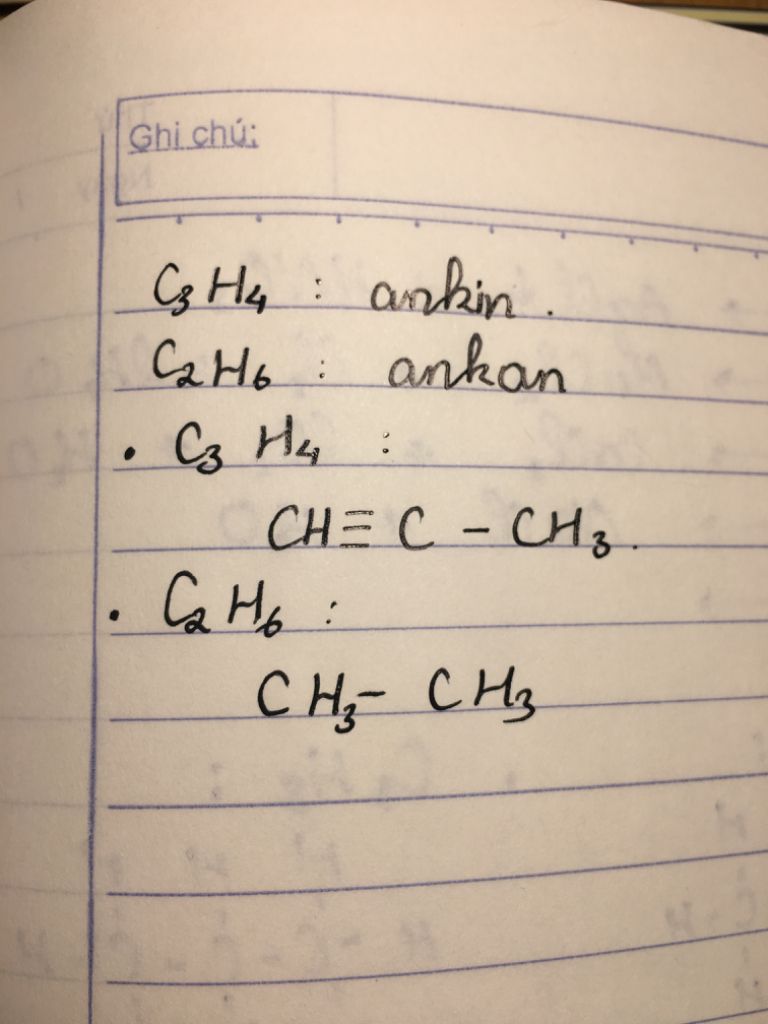 Ghi chú:
C₃H₄ : ankin.
C₂H₆ : ankan
• C₃H₄ :
CH≡C – CH₃.
• C₂H₆ :
CH₃ – CH₃